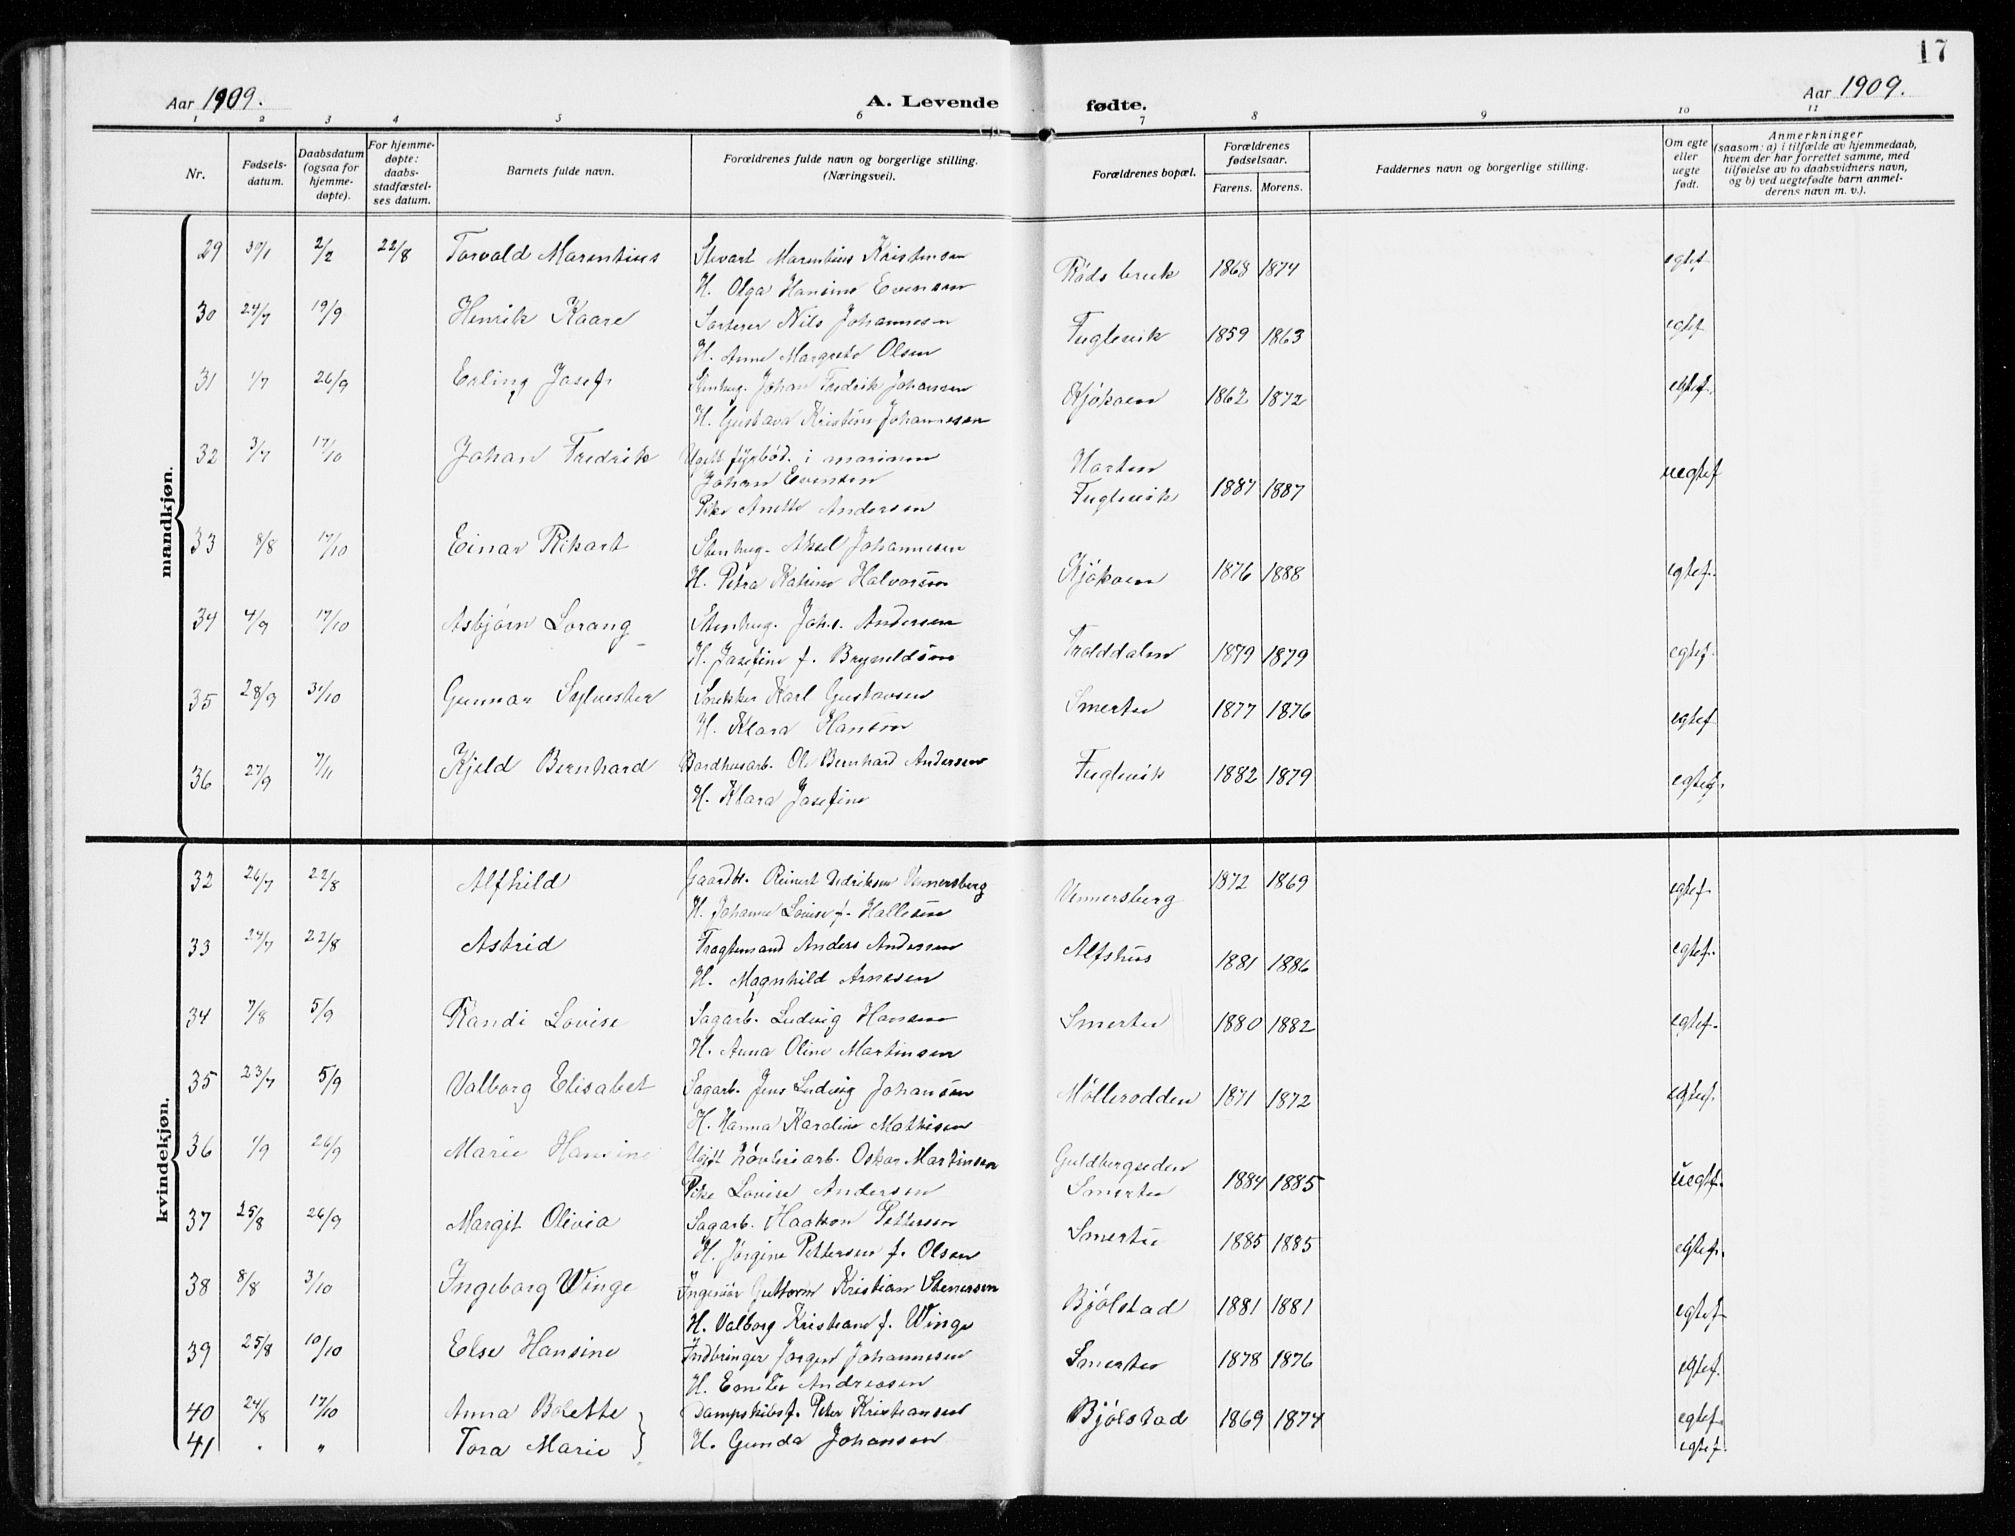 17
Aar 1909.
A. Levende fødte.
Aar 1909.
1 2 3 4 5 6 7 8 9 10 11
Nr.
Fødsels-
datum.
Daabsdatum
(ogsaa for
hjemme-
døpte).
For hjemme-
døpte:
daabs-
stadfæstel-
ses datum.
Barnets fulde navn.
Forældrenes fulde navn og borgerlige stilling.
(Næringsvei).
Forældrenes bopæl.
Forældrenes
fødselsaar.
Farens. Morens.
Faddernes navn og borgerlige stilling.
Om egte
eller
uegte
født.
Anmerkninger
(saasom: a) i tilfælde av hjemmedaab,
hvem der har forrettet samme, med
tilføielse av to daabsvidners navn,
og b) ved uegtefødte barn anmel-
derens navn m. v.).
mandkjøn.
29 30/1 2/2 22/8 Torvald Marentius Stuart Marentius Kristensen Røds bruk 1868 1874 egtef
H. Olga Hansine Evensen
30 24/7 19/9 Henrik Kaare Sorterer Nils Johannesen Fuglevik 1859 1863 egtef
H. Anne Margrete Olsen
31 1/7 26/9 Erling Josef Stenhug. Johan Fredrik Johansen Kjøkøen 1862 1872 egtef.
H. Gustava Kristine Johannesen
32 3/7 17/10 Johan Fredrik Ugift fyrbød. i marinen Horten uegtef
Johan Evensen Fuglevik 1887 1887
Pike Anette Andersen
33 8/8 17/10 Einar Rikart Stenhug. Aksel Johannesen Kjøkøen 1876 1888 egtef.
H. Petra Katrine Halvorsen
34 4/9 17/10 Asbjørn Lorang Stenhug. Johs. Andersen Trolddalen 1879 1879 egtef.
H. Josefine f. Bryneldsen
35 28/9 31/10 Gunnar Sylvester Snekker Karl Gustavsen Smertu 1877 1876 egtef
H. Klara Hansen
36 27/9 7/11 Kjeld Bernhard Bordhusarb. Ole Bernhard Andersen Fuglevik 1882 1879 egtef.
H. Klara Josefine
kvindekjøn.
32 26/7 22/8 Alfhild Gaardbr. Reinert Vennersberg Vennersberg 1872 1869 egtef.
H. Johanne Lovise f. Hallesen
33 24/7 22/8 Astrid Fragtemand Anders Andersen Alfshus 1881 1886 egtef.
H. Magnhild Arnesen
34 7/8 5/9 Randi Lovise Sagarb. Ludvig Hansen Smertu 1880 1882 egtef.
H. Anna Oline Martinsen
35 23/7 5/9 Valborg Elisabet Sagarb. Jens Ludvig Johansen Møllerodden 1871 1872 egtef.
H. Hanna Karoline Mathisen
36 1/9 26/9 Marie Hansine Ugift høvleriarb. Oskar Martinsen Guldbergseden uegtef.
Pike Lovise Andersen Smertu 1884 1885
37 25/8 26/9 Margit Olivia Sagarb. Haakon Pettersen Smertu 1885 1885 egtef.
H. Jørgine Pettersen f. Olsen
38 8/8 3/10 Ingeborg Winge Ingeniør Guttorm Kristian Stenersen Bjølstad 1881 1881 egtef
H. Valborg Kristiane f. Winge
39 25/8 10/10 Else Hansine Indbringer Jørgen Johannesen Smertu 1878 1876 egtef.
H. Emelie Andreasen
40 24/8 17/10 Anna Bolette Dampskibsf. Peter Kristiansen Bjølstad 1869 1874 egtef.
41 " " Tora Marie H. Gunda Johansen egtef.